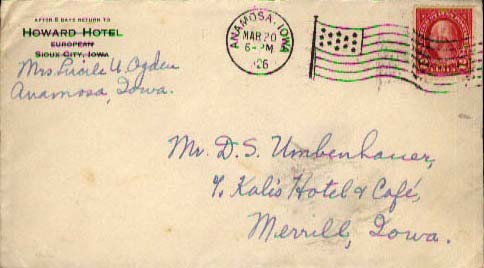 AFTER 5 DAYS RETURN TO
HOWARD HOTEL
EUROPEAN
SIOUX CITY, IOWA
Mrs. Lucile U. Ogden
Anamosa, Iowa.
ANAMOSA, IOWA
MAR 20
6-PM
'26
Mr. D. S. Umbenhauer,
% Kalis Hotel & Café,
Merrill, Iowa.